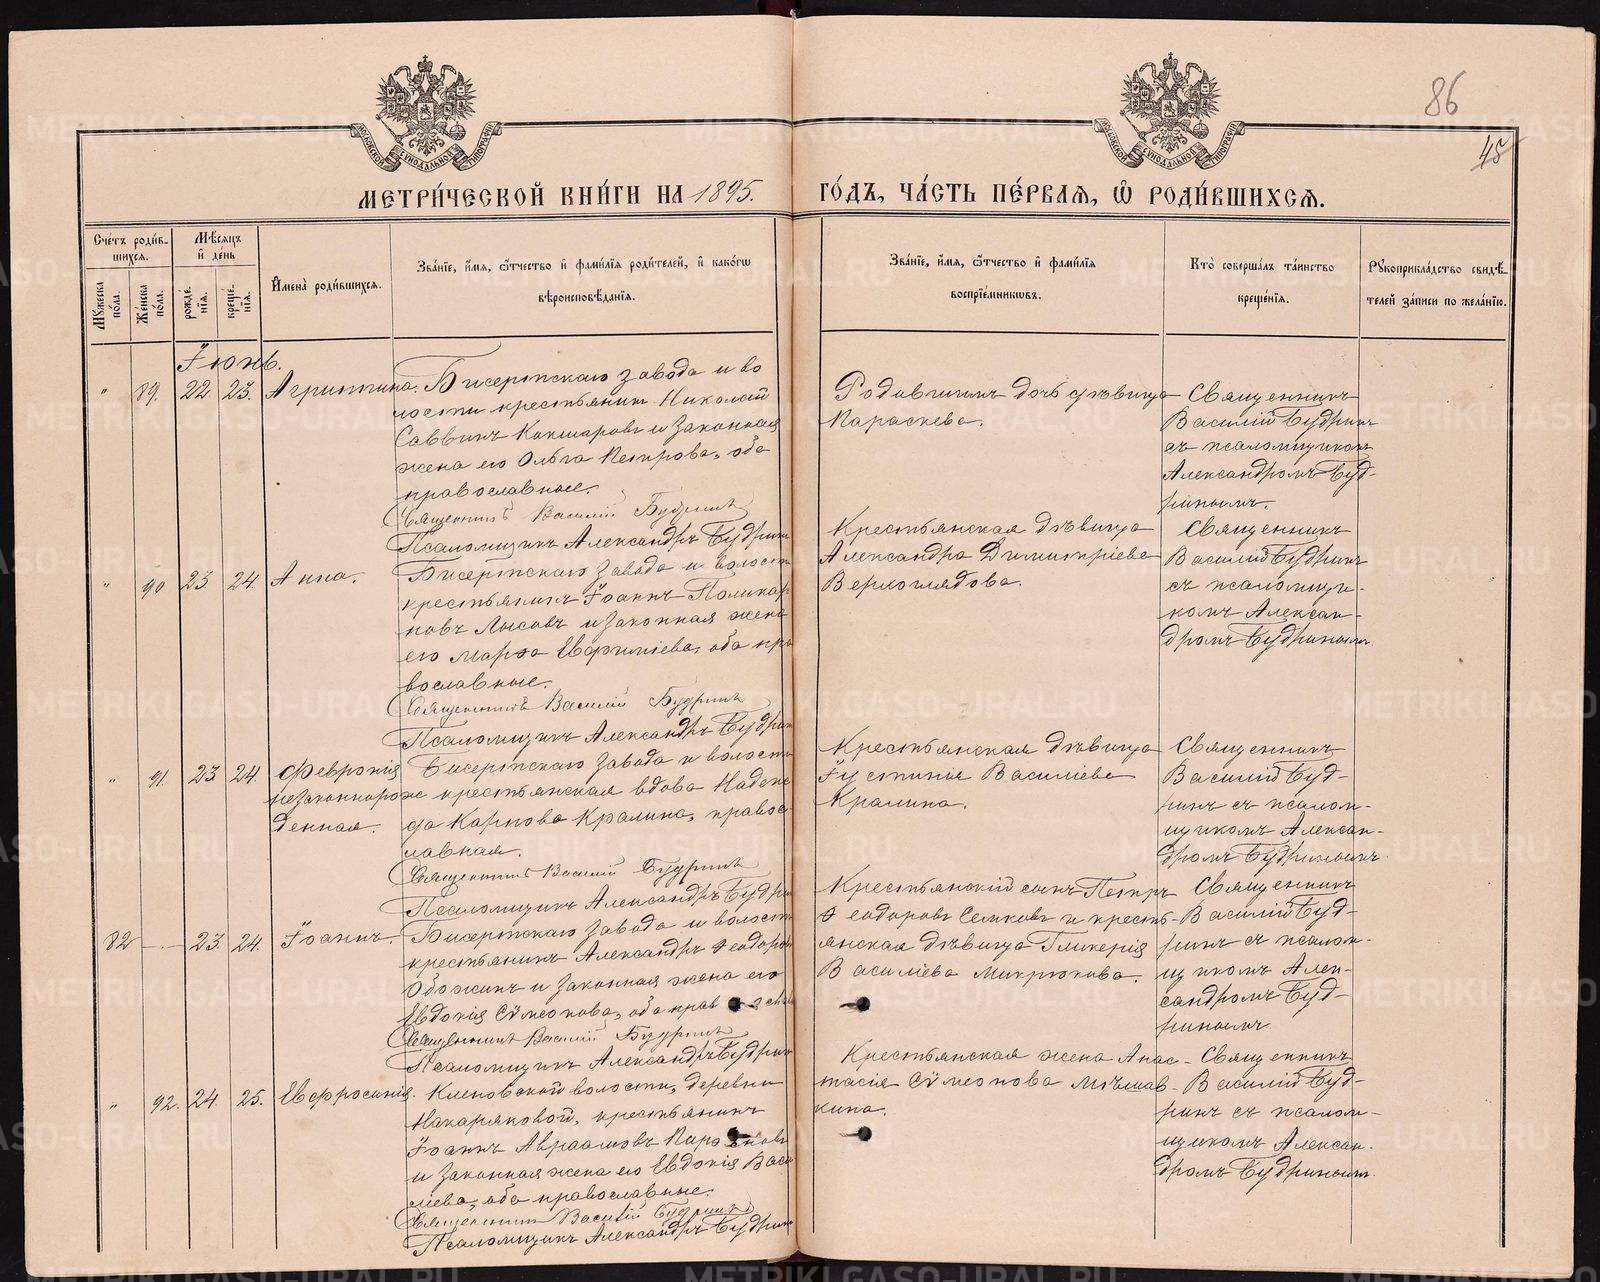 86
45
МОСКОВСКОЙ СѴНОДАЛЬНОЙ ТИПОГРАФІИ
МОСКОВСКОЙ СѴНОДАЛЬНОЙ ТИПОГРАФІИ
МЕТРИ́ЧЕСКОЙ КНИ́ГИ НА 1895.
ГО́ДЪ, ЧА́СТЬ ПЕ́РВАѦ, Ѿ РОДИ́ВШИХСѦ.
Сче́тъ роди́в-
шихсѧ.
Мѣ́сѧцъ
и҆ де́нь
Мꙋ́жеска
по́ла.
Же́нска
по́ла.
рожде́-
нїѧ.
креще́-
нїѧ.
И҆мена̀ роди́вшихсѧ.
Зва́нїе, и҆́мѧ, ѻ҆́тчество и҆ фамі́лїѧ роди́телей, и҆ како́гѡ
вѣроисповѣ́данїѧ.
Зва́нїе, и҆́мѧ, ѻ҆́тчество и҆ фамі́лїѧ
воспрїе́мникѡвъ.
Кто̀ соверша́лъ та́инство
креще́нїѧ.
Рꙋкоприкла́дство свидѣ́-
телей за́писи по жела́нїю.
Іюнь.
" 89. 22 23. Агриппина. Бисертскаго завода и во
лости крестьянин Николай
Саввинъ Кокшаровъ и законная
жена его Ольга Петрова, оба
православные.
Священникъ Василий Будринъ
Псаломщикъ Александръ Будрин
Родившихъ дочь дѣвица
Параскева.
Священникъ
Василій Будринъ
съ псаломщиком
Александромъ Буд-
ринымъ.
" 90 23 24. Анна. Бисертскаго завода и волости
крестьянинъ Іоаннъ Поликар
повъ Лысовъ и законная жена
его Марѳа Евфиміева, оба пра
вославные.
Священникъ Василий Будринъ
Псаломщикъ Александръ Будрин
Крестьянская дѣвица
Александра Димитріева
Верхоглядова.
Священникъ
Василій Будринъ
съ псаломщи-
комъ Алексан-
дромъ Будринымъ
" 91. 23 24. Феврония
незаконнорож
денная.
Бисертскаго завода и волости
крестьянская вдова Надеж
да Карпова Кралина, правос
лавная.
Священникъ Василий Будринъ
Псаломщикъ Александръ Будри
Крестьянская дѣвица
Іустинія Василіева
Кралина.
Священникъ
Василій Буд-
ринъ съ псалом-
щикомъ Алексан-
дромъ Будринымъ.
82 - . - 23 24. Іоаннъ. Бисертскаго завода и волости
крестьянинъ Александръ Ѳеодоров
Обожинъ и законная жена его
Евдокія Сѵмеонова, оба
Священникъ Василий Будринъ
Псаломщикъ Александръ Будрин
Крестьянскій сынъ Петръ
Ѳеодоровъ Селковъ и кресть-
янская дѣвица Гликерія
Василіева Микрюкова.
Священникъ
Василій Буд-
ринъ съ псалом-
щикомъ Алек-
сандромъ Буд-
ринымъ
" 92. 24. 25. Евфросинія. Кленовской волости, деревни
Накаряковой, крестьянинъ
Іоаннъ Авраамовъ
и законная жена его Евдокія Васи
лиева, оба православные.
Священникъ Василий Будринъ
Псаломщикъ Александръ Будрин
Крестьянская жена Анас-
тасія Сѵмеонова
кина.
Священникъ
Василій Буд-
ринъ съ псалом-
щикомъ Алексан-
дромъ Будринымъ.